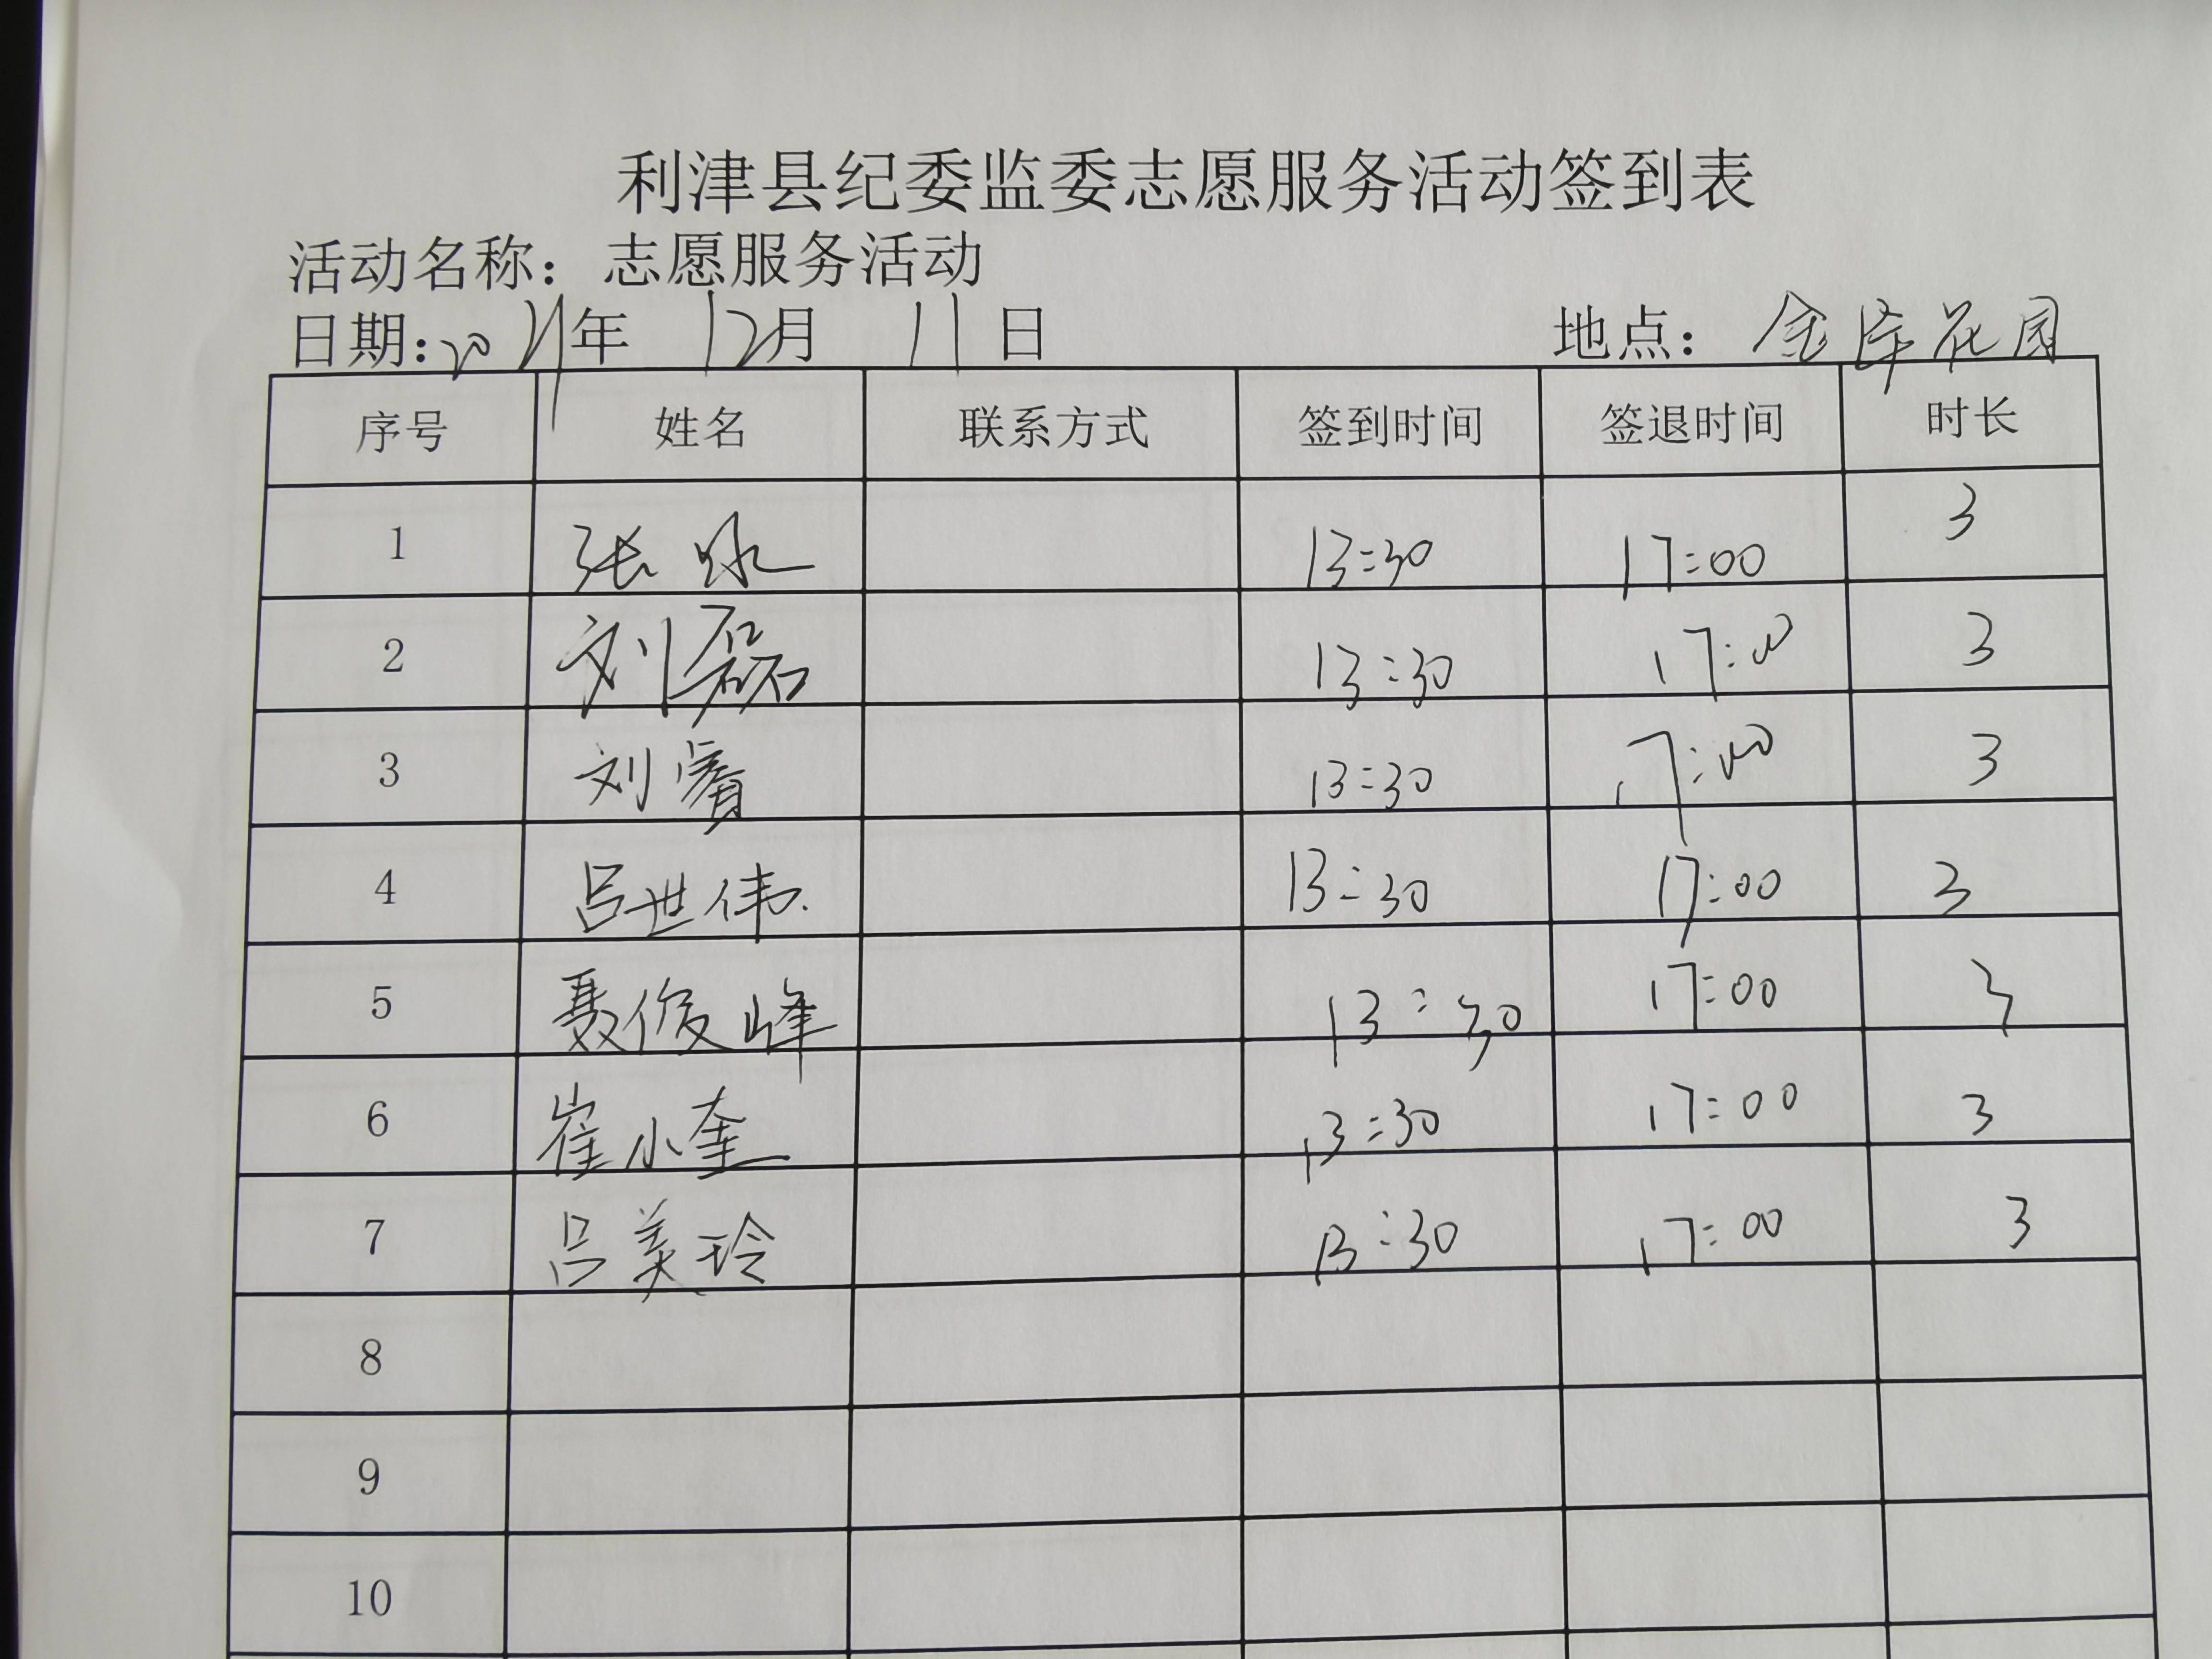 利津县纪委监委志愿服务活动签到表
活动名称：志愿服务活动
日期：2021年 12月 11日 地点：金岸花园
序号 姓名 联系方式 签到时间 签退时间 时长
1 张 13:30 17:00 3
2 刘磊 13:30 17:00 3
3 刘 13:30 17:00 3
4 吕世伟 13:30 17:00 3
5 聂俊峰 13:30 17:00 3
6 崔小奎 13:30 17:00 3
7 吕美玲 13:30 17:00 3
8
9
10